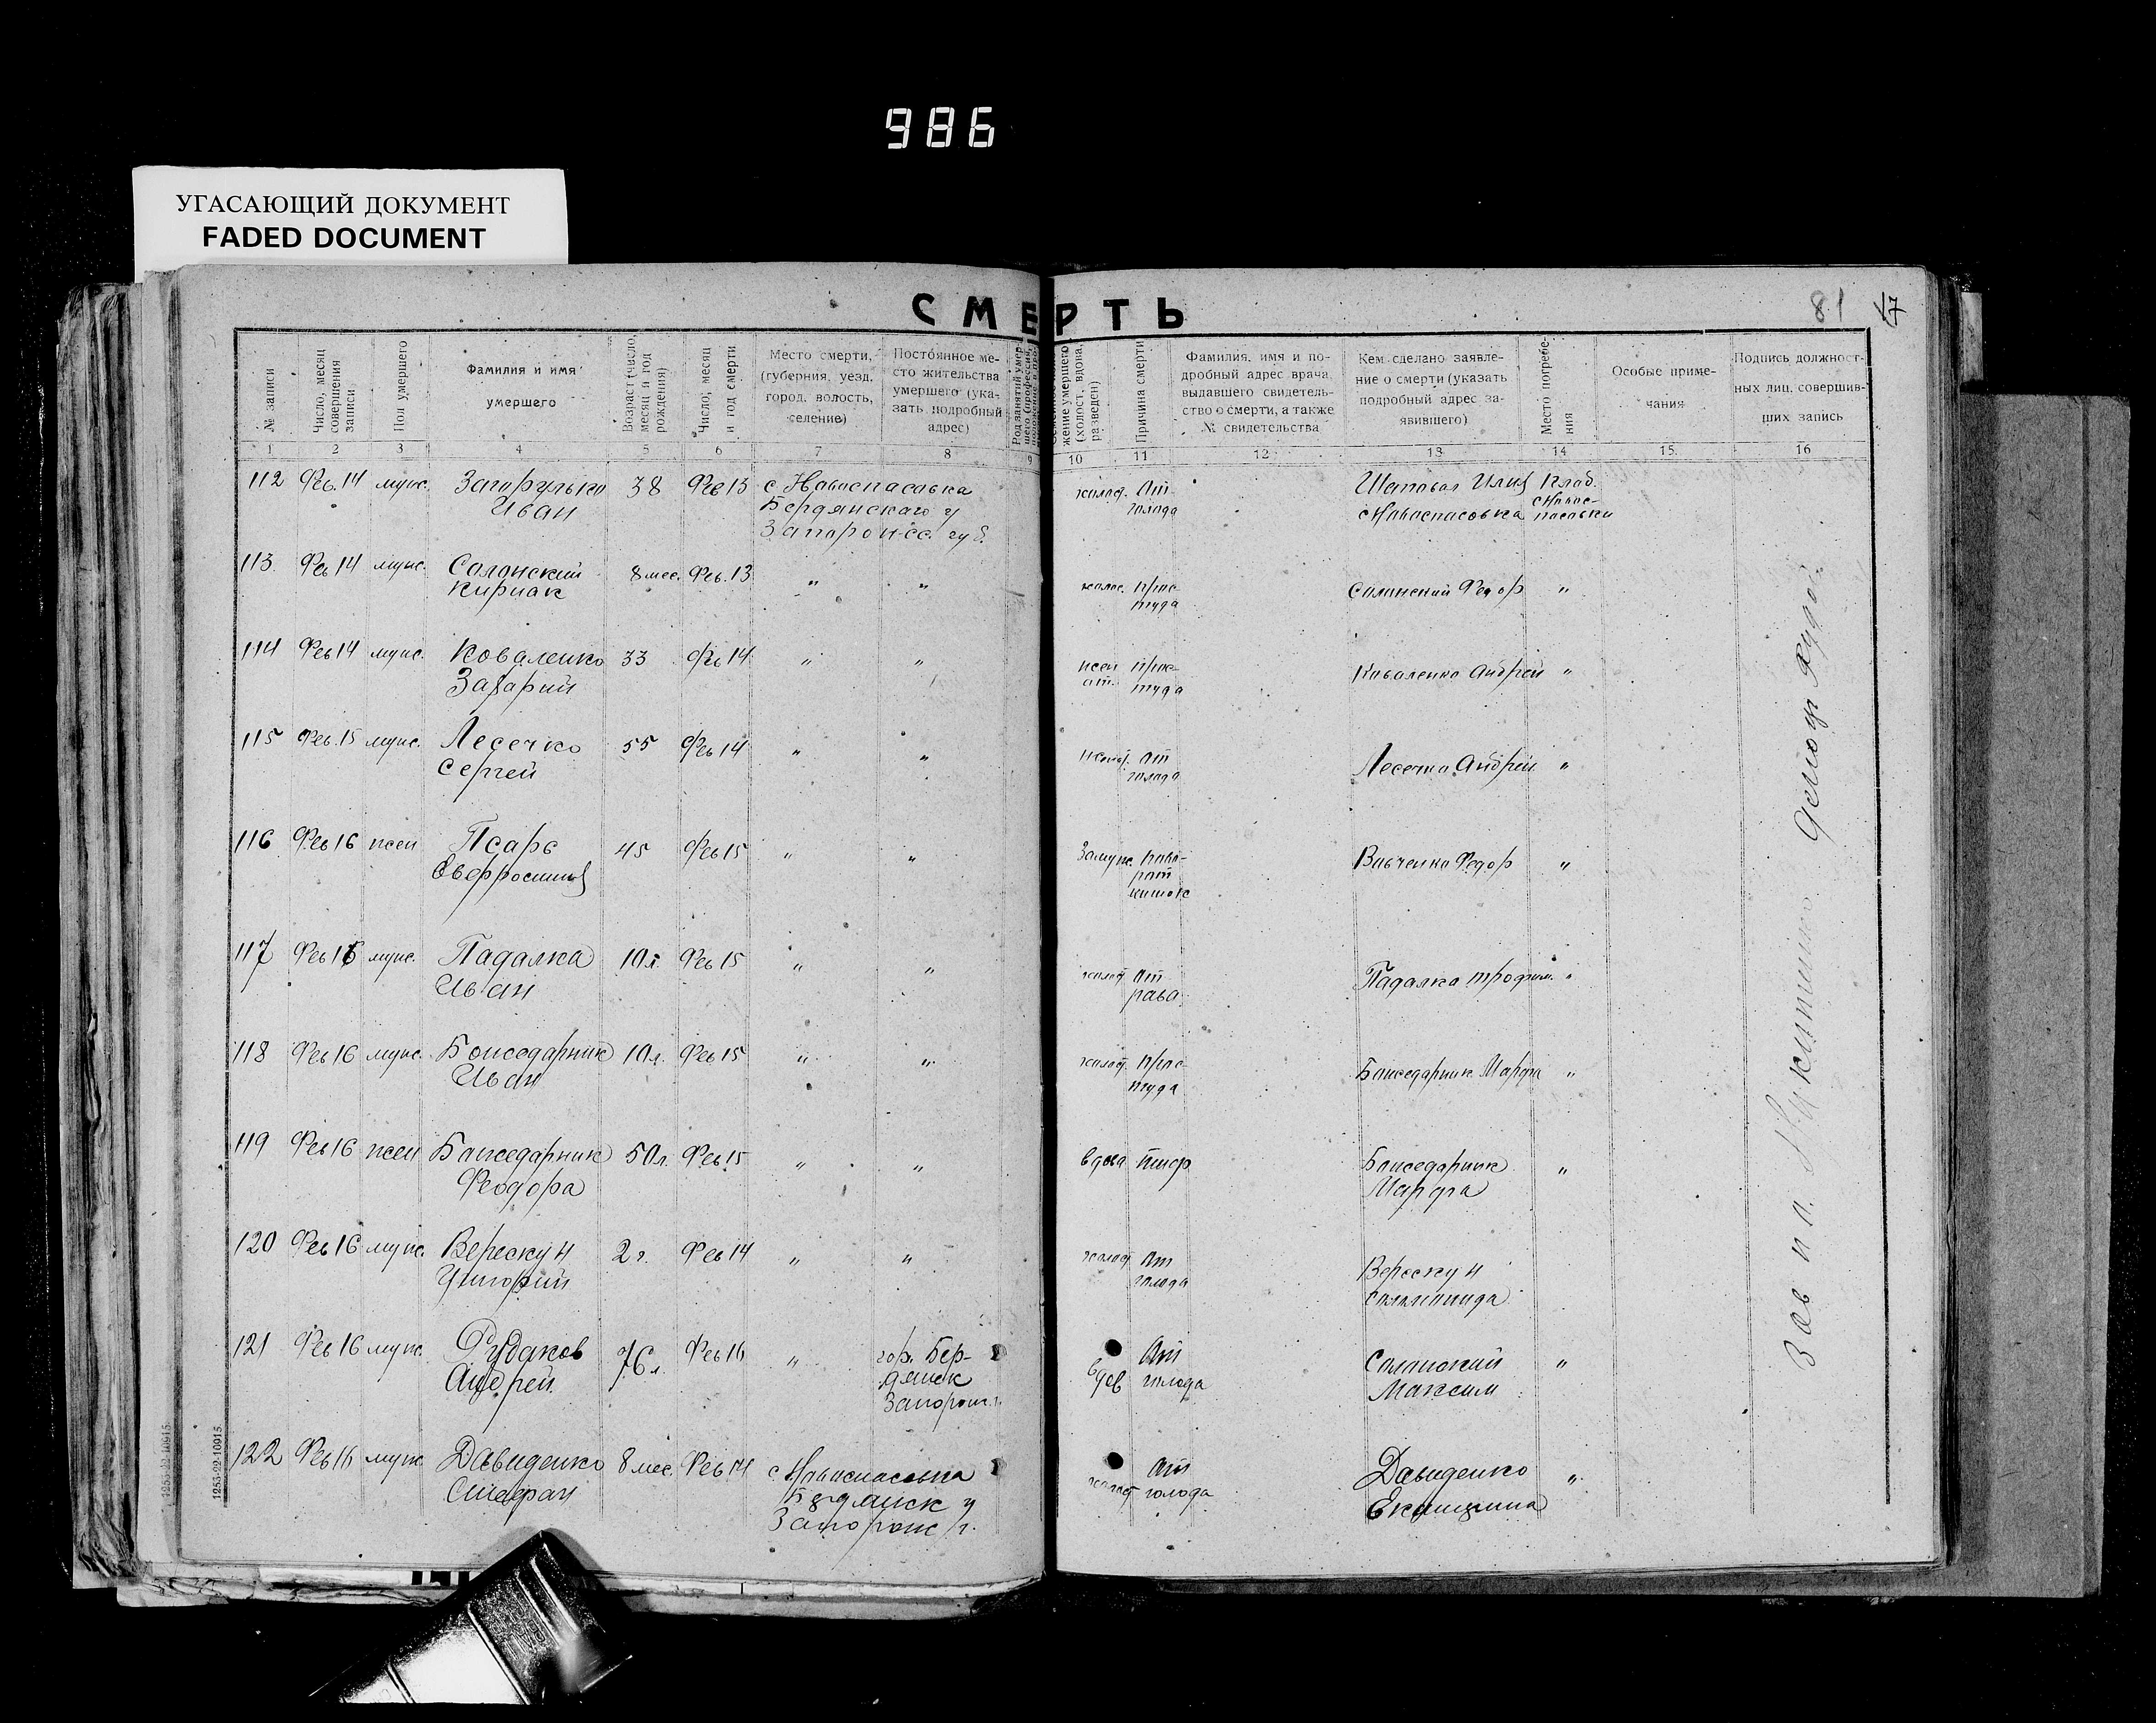 986
УГАСАЮЩИЙ ДОКУМЕНТ
FADED DOCUMENT
СМЕРТЬ
81
№ записи
Число, месяц совершения записи
Пол умершего
Фамилия и имя умершего
Возраст (число, месяц и год рождения)
Число, месяц и год смерти
Место смерти, (губерния, уезд, город, волость, селение)
Постоянное место жительства умершего (указать подробный адрес)
Причина смерти
Фамилия, имя и подробный адрес врача, выдавшего свидетельство о смерти, а также № свидетельства
Кем сделано заявление о смерти (указать подробный адрес заявившего)
Место погребения
Особые примечания
Подпись должностных лиц, совершивших запись
1 2 3 4 5 6 7 8 9 10 11 12 13 14 15 16
112 Фев. 14 муж. Загорулько 38 Фев 13 с Новоспасовка холост. От Шаповал Илия Клад.
Иван Бердянского у голода с Новоспасовка с Новос-
Запорож. губ. пасовки
113 Фев 14 муж. Солонский 8 мес. Фев. 13 " " холос. прос- Солонский Федор "
Кириак туда
114 Фев 14 муж. Коваленко 33 Фев 14 " " жен прос- Коваленко Андрей "
Захарий ат. туда
115 Фев. 15 муж. Лесечко 55 Фев 14 " " От Лесечко Андрей "
Сергей голода
116 Фев 16 жен Псарь 45 Фев 15 " " Замуж. Вовченко Федор "
Евфросиния кишок
117 Фев 16 муж. Падалка 10 л. Фев 15 " " холост От Падалка Трофим "
Иван
118 Фев 16 муж. Бонседарник 10 л. Фев 15 " " холост. прос- Бонседарник Марфа "
Иван туда
119 Фев 16 жен Бонседарник 50 л. Фев 15 " " вдова тиф Бонседарник "
Феодора Марфа
120 Фев 16 муж. Верескун 2 г. Фев 14 " " холост От Верескун
Григорий голода
121 Фев 16 муж. Рудаков 76 л. Фев 16 " гор. Бер- вдов От Солонский "
Андрей дянск голода Максим
Запорож.
122 Фев 16 муж Давиденко 8 мес. Фев 14 с. Новоспасовка холост От Давиденко "
Стефан Бердянск у голода Екатерина
Запорож г.
Зав п о.
1253-22-10915
1253-22-10915